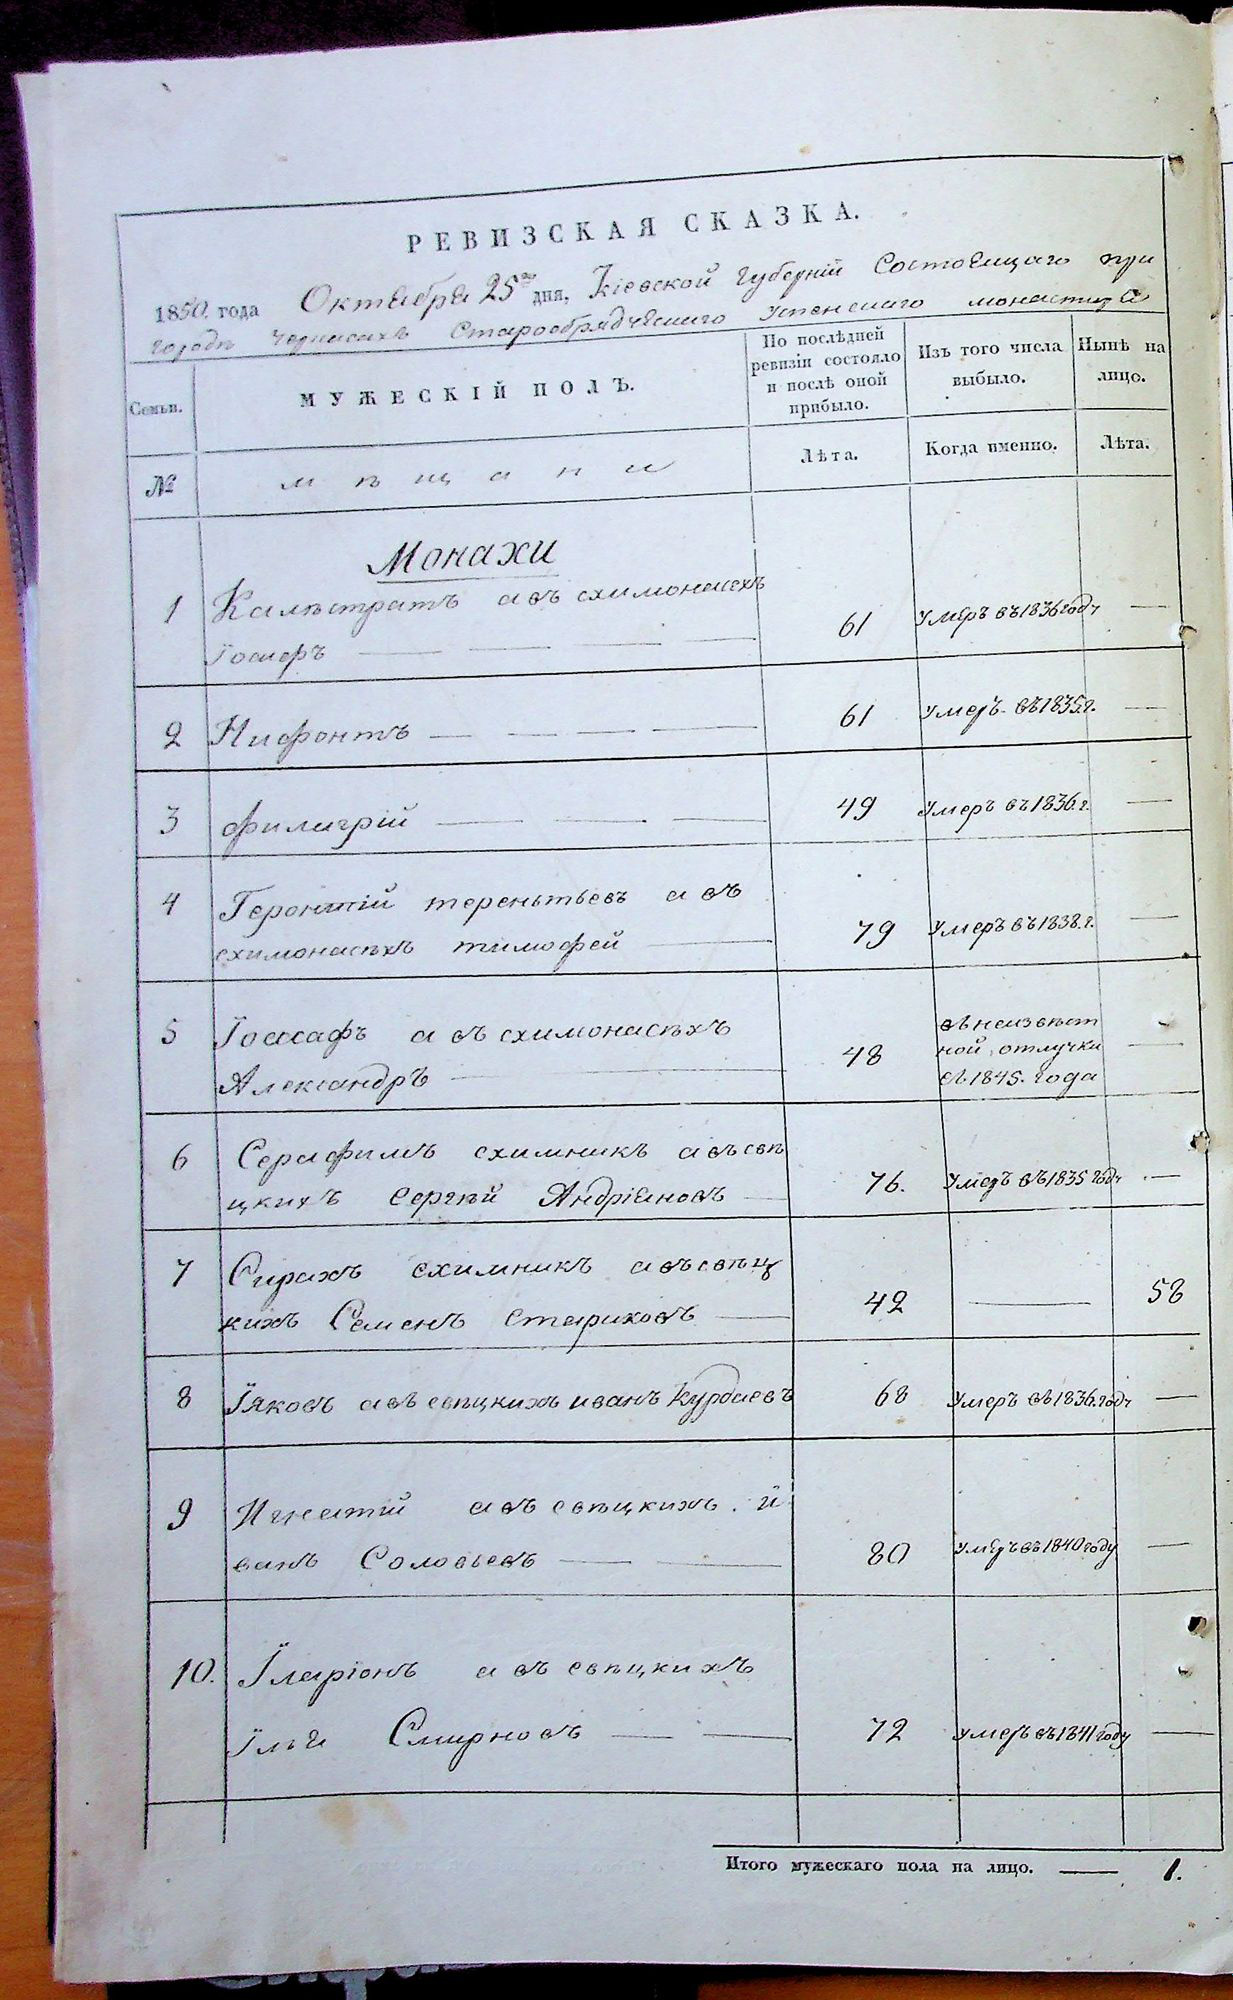 РЕВИЗСКАЯ СКАЗКА.
1850. года Октября 25го дня, Кіевской Губерніи Состоящаго при
городѣ Черкасахъ Старообрядческаго Успенскаго монастиря
Семьи.
МУЖЕСКІЙ ПОЛЪ.
По послѣдней
ревизіи состояло
и послѣ оной
прибыло.
Изъ того числа
выбыло.
Нынѣ на
лицо.
№
мѣщани
Лѣта.
Когда именно.
Лѣта.
Монахи
1 Калистратъ а въ схимонасехъ
Іосифъ 61 Умеръ въ 1836 году —
2 Нифонтъ 61 Умеръ въ 1835.г. —
3 филагрій 49 Умеръ въ 1836.г. —
4 Геронтій терентьевъ а въ
схимонасѣхъ тимофей 79 Умеръ въ 1838.г. —
5 Іоасафъ а въ схимонасѣхъ
Александръ 48
въ неизвѣст
ной отлучки
съ 1845. года —
6 Серафимъ схимникъ а въ свѣ
цкихъ Сергѣй Андріяновъ 76. Умеръ въ 1835 году —
7 Сирахъ схимникъ а въ свѣц
кихъ Семенъ Стариковъ 42 — 58
8 Іяковъ а въ свѣцкихъ иванъ Курбаевъ 68 Умеръ въ 1836. году —
9 Игнатій а въ свѣцкихъ. й
ванъ Соловьевъ 80 умеръ въ 1840 году —
10. Іларіонъ а въ свѣцкихъ
Ілья Смирновъ 72 умеръ въ 1841 году —
Итого мужескаго пола на лицо. — 1.